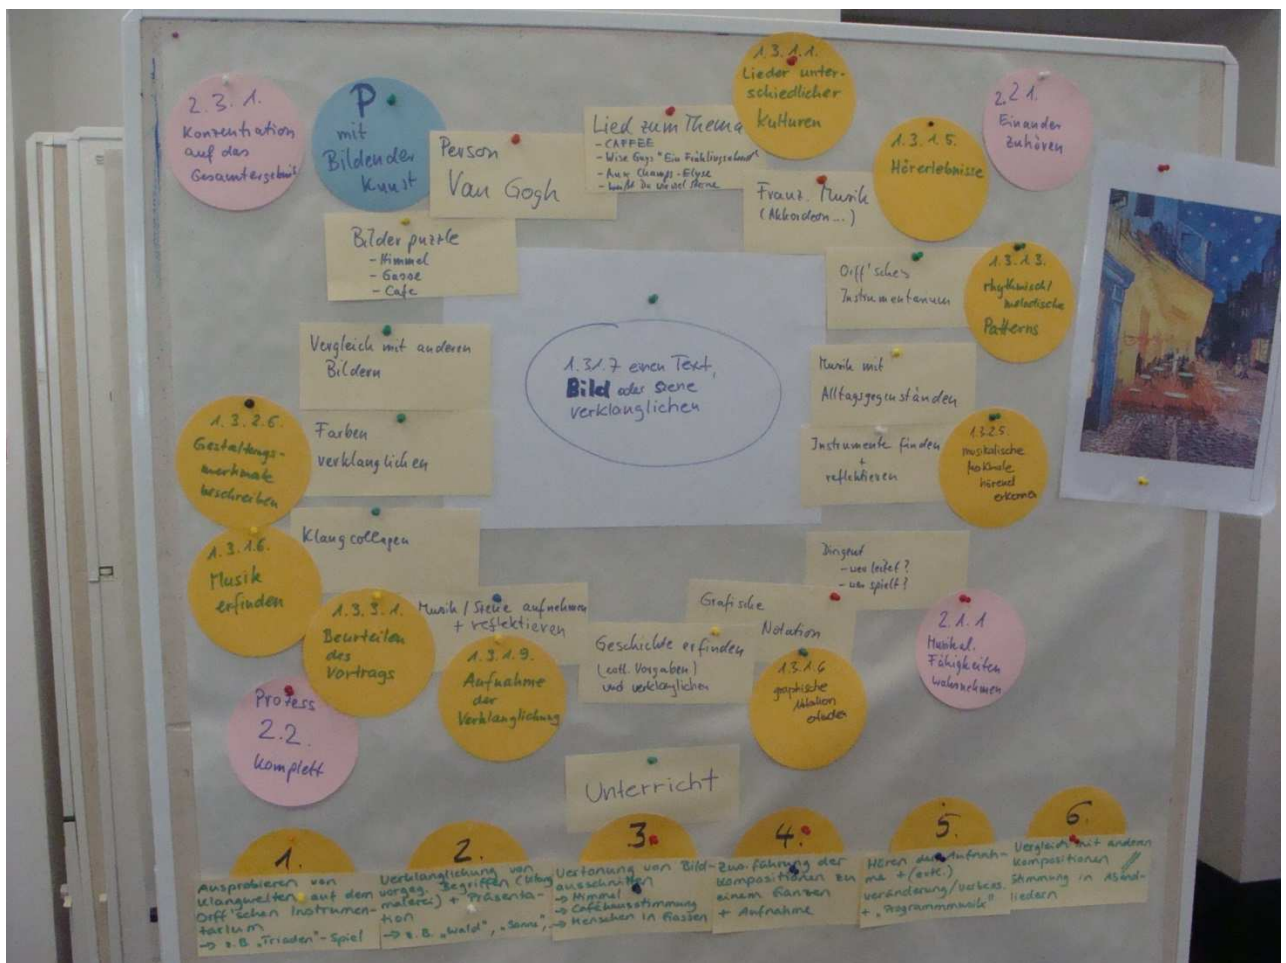 2.3.1.
Konzentration
auf das
Gesamtergebnis
P
mit
Bildender
Kunst
Person
Van Gogh
Lied zum Thema
- CAFFEE
- Wise Guys "Ein
- Aux Champs-Elyse
- weißt Du wieviel Sterne
1.3.1.1.
Lieder unter-
schiedlicher
Kulturen
1.3.1.5.
Hörerlebnisse
2.2.1.
Einander
zuhören
Franz. Musik
(Akkordeon...)
Bilderpuzzle
- Himmel
- Gasse
- Cafe
Orff'sches
Instrumentarium
1.3.1.3.
rhythmisch/
melodische
Patterns
Vergleich mit anderen
Bildern
1.3.1.7 einen Text,
Bild oder Szene
verklanglichen
Musik mit
Alltagsgegenständen
1.3.2.6.
Gestaltungs-
merkmale
beschreiben
Farben
verklanglichen
Instrumente finden
+
reflektieren
1.3.2.5.
musikalische
Merkmale
hörend
erkennen
1.3.1.6.
Musik
erfinden
Klangcollagen
Dirigent
- wer leitet?
- wer spielt?
1.3.3.1.
Beurteilen
des
Vortrags
Musik / Szene aufnehmen
+ reflektieren
1.3.1.9.
Aufnahme
der
Verklanglichung
Geschichte erfinden
(evtl. Vorgaben)
und verklanglichen
Grafische
Notation
1.3.1.6
graphische
Notation
2.1.1
Musikal.
Fähigkeiten
wahrnehmen
Prozess
2.2.
komplett
Unterricht
1.
Ausprobieren von
Klangwelten auf dem
Orff'schen Instrumen-
tarium
→ z.B. „Triaden"-Spiel
2.
Verklanglichung von
vorgeg. Begriffen
malerei) + Präsenta-
tion
→ z.B. „Wald", „Sonne",..
3.
Vertonung von Bild-
ausschnitten
→ Himmel
→ Caféhausstimmung
→ Menschen in Gassen
4.
Zus.führung der
Kompositionen zu
einem Ganzen
+ Aufnahme
5.
Hören der Aufnah-
me + (evtl.)
veränderung/verbess.
+ „Programmmusik"
6.
Vergleich mit anderen
Kompositionen
Stimmung in Abend-
liedern